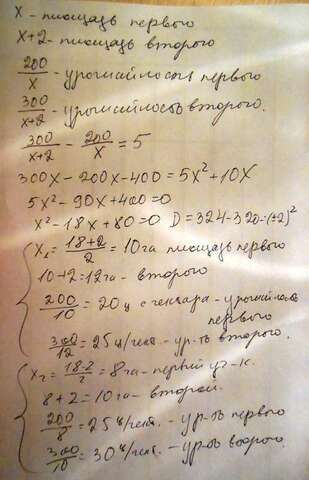 X - площадь первого
X+2 - площадь второго
200/X - урожайность первого
300/X+2 - урожайность второго.
300/X+2 - 200/X = 5
300X - 200X - 400 = 5X² + 10X
5X² - 90X + 400 = 0
X² - 18X + 80 = 0 D = 324 - 320 = (±2)²
X₁ = 18+2/2 = 10 га площадь первого
10+2 = 12 га - второго
200/10 = 20 ц с гектара - урожайность первого
300/12 = 25 ц/гект. - ур-ть второго.
X₂ = 18-2/2 = 8 га - первый уч-к.
8+2 = 10 га - второй.
200/8 = 25 ц/гект. - ур-ть первого
300/10 = 30 ц/гект. - ур-ть второго.